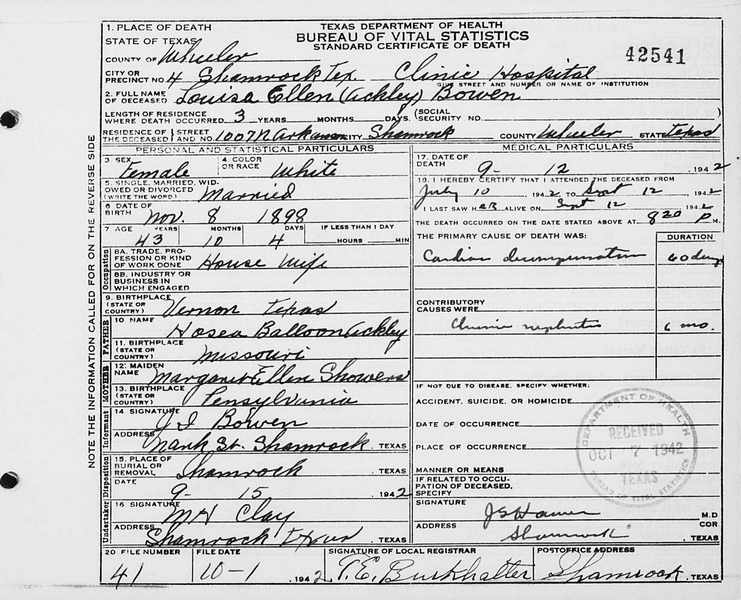 TEXAS DEPARTMENT OF HEALTH
BUREAU OF VITAL STATISTICS
STANDARD CERTIFICATE OF DEATH
42541
NOTE THE INFORMATION CALLED FOR ON THE REVERSE SIDE
1. PLACE OF DEATH
STATE OF TEXAS
COUNTY OF Wheeler
CITY OR PRECINCT NO. 4 Shamrock Tex. Clinic Hospital
GIVE STREET AND NUMBER OR NAME OF INSTITUTION
2. FULL NAME OF DECEASED Louisa Ellen (Ackley) Bowen
LENGTH OF RESIDENCE WHERE DEATH OCCURRED 3 YEARS MONTHS DAYS (SOCIAL SECURITY NO.
RESIDENCE OF THE DECEASED STREET AND NO. 1007 N Arkansas CITY Shamrock COUNTY Wheeler STATE Texas
PERSONAL AND STATISTICAL PARTICULARS
3. SEX Female 4. COLOR OR RACE White
5. SINGLE, MARRIED, WIDOWED OR DIVORCED (WRITE THE WORD) Married
6. DATE OF BIRTH Nov. 8 1898
7. AGE YEARS 43 MONTHS 10 DAYS 4 IF LESS THAN 1 DAY HOURS MIN
Occupation
8A. TRADE, PROFESSION OR KIND OF WORK DONE House Wife
8B. INDUSTRY OR BUSINESS IN WHICH ENGAGED
9. BIRTHPLACE (STATE OR COUNTRY) Vernon Texas
FATHER
10 NAME Hosea Balloon Ackley
11. BIRTHPLACE (STATE OR COUNTRY) Missouri
MOTHER
12. MAIDEN NAME Margaret Ellen Showers
13. BIRTHPLACE (STATE OR COUNTRY) Pensylvania
Informant
14 SIGNATURE J I Bowen
ADDRESS St. Shamrock TEXAS
Disposition
15. PLACE OF BURIAL OR REMOVAL Shamrock TEXAS
DATE 9- 15 1942
Undertaker
16 SIGNATURE M H Clay
ADDRESS Shamrock Texas TEXAS
MEDICAL PARTICULARS
17. DATE OF DEATH 9- 12 1942
18. I HEREBY CERTIFY THAT I ATTENDED THE DECEASED FROM
July 10 1942 TO Sept 12 1942
I LAST SAW HER ALIVE ON Sept 12 1942
THE DEATH OCCURRED ON THE DATE STATED ABOVE AT 8 20 P M.
THE PRIMARY CAUSE OF DEATH WAS: DURATION
Cardiac decompensation 60 days
CONTRIBUTORY CAUSES WERE:
Chronic nephritis 6 mo.
IF NOT DUE TO DISEASE, SPECIFY WHETHER:
ACCIDENT, SUICIDE, OR HOMICIDE
DATE OF OCCURRENCE
PLACE OF OCCURRENCE
MANNER OR MEANS
IF RELATED TO OCCUPATION OF DECEASED, SPECIFY
DEPARTMENT OF HEALTH
RECEIVED
OCT 7 1942
TEXAS
BUREAU OF VITAL STATISTICS
SIGNATURE M.D
ADDRESS Shamrock COR
TEXAS
20 FILE NUMBER 41
FILE DATE 10-1 1942
SIGNATURE OF LOCAL REGISTRAR T. E. Burkhalter
POSTOFFICE ADDRESS Shamrock, TEXAS